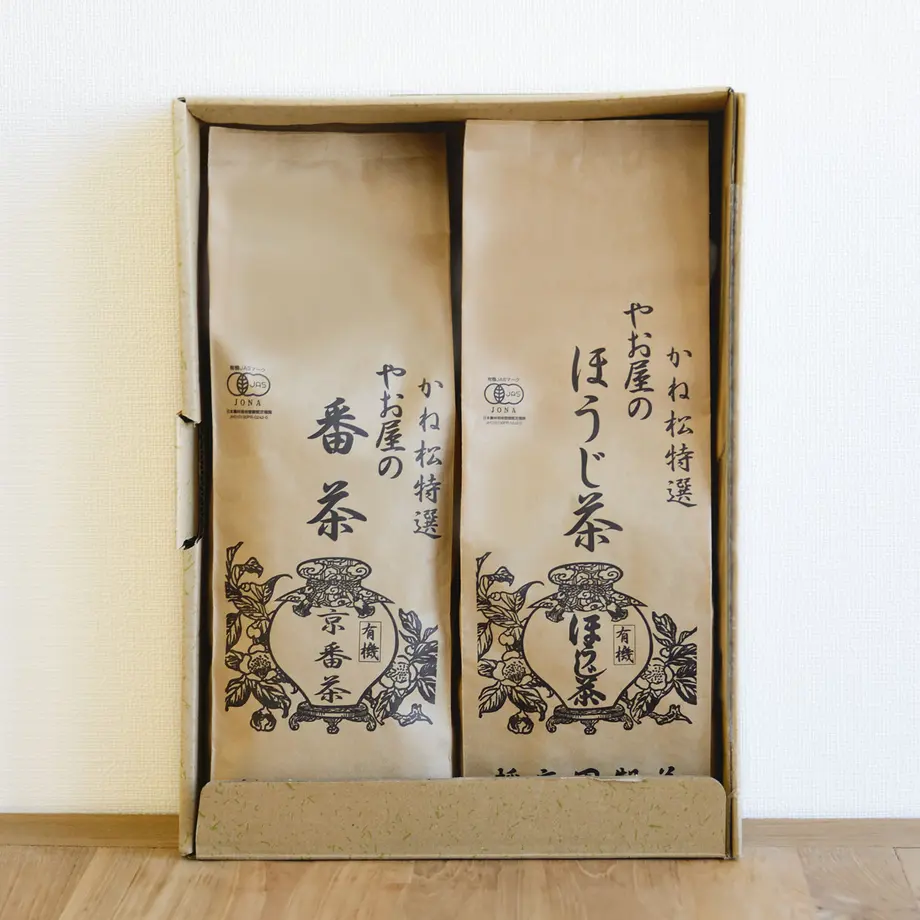 かね松特選
やお屋の
番茶
有機JASマーク
JAS
JONA
有機
京番茶
かね松特選
やお屋の
ほうじ茶
有機JASマーク
JAS
JONA
有機
ほうじ茶